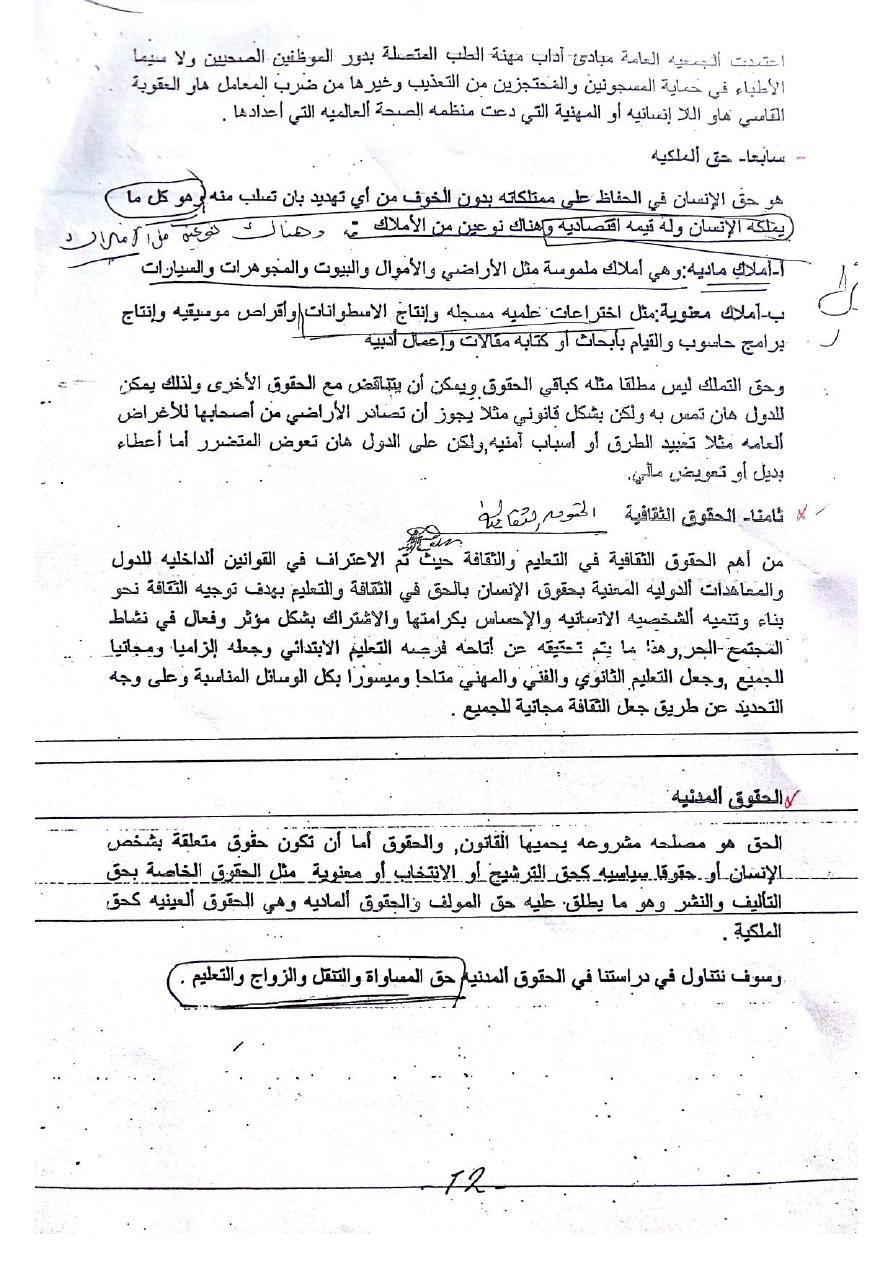 اعتمدت ألجمعيه العامة مبادئ آداب مهنة الطب المتصلة بدور الموظفين الصحيين ولا سيما
الأطباء في حماية المسجونين والمحتجزين من التعذيب وغيرها من ضرب المعامل هاو العقوبة
القاسي هاو اللا إنسانيه أو المهنية التي دعت منظمه الصحة العالميه التي أعدادها .
- سابعا- حق ألملكيه
هو حق الإنسان في الحفاظ على ممتلكاته بدون الخوف من أي تهديد بان تسلب منه وهو كل ما
يمتلكه الإنسان ولة قيمه اقتصاديه وهناك نوعين من الأملاك
وهناك نوعين من الأملاك
أ-أملاك ماديه:وهي أملاك ملموسة مثل الأراضي والأموال والبيوت والمجوهرات والسيارات
ب-أملاك معنوية:مثل اختراعات علميه مسجله وإنتاج الاسطوانات وأقراص موسيقيه وإنتاج
برامج حاسوب والقيام بأبحاث أو كتابه مقالات وإعمال أدبيه
وحق التملك ليس مطلقا مثله كباقي الحقوق ويمكن أن يتناقض مع الحقوق الأخرى ولذلك يمكن
للدول هان تمس به ولكن بشكل قانوني مثلا يجوز أن تصادر الأراضي من أصحابها للأغراض
ألعامه مثلا تعبيد الطرق أو أسباب آمنيه,ولكن على الدول هان تعوض المتضرر أما أعطاء
بديل أو تعويض مالي.
ثامنا- الحقوق الثقافية الحقوق الثقافية
من أهم الحقوق الثقافية في التعليم والثقافة حيث تم الاعتراف في القوانين ألداخليه للدول
والمعاهدات ألدوليه المعنية بحقوق الإنسان بالحق في الثقافة والتعليم بهدف توجيه الثقافة نحو
بناء وتنميه ألشخصيه الانسانيه والإحساس بكرامتها والاشتراك بشكل مؤثر وفعال في نشاط
المجتمع الحر,وهذا ما يتم تحقيقه عن أتاحه فرصه التعليم الابتدائي وجعله إلزاميا ومجانيا
للجميع ,وجعل التعليم الثانوي والفني والمهني متاحا وميسورا بكل الوسائل المناسبة وعلى وجه
التحديد عن طريق جعل الثقافة مجانية للجميع .
الحقوق ألمدنيه
الحق هو مصلحه مشروعه يحميها القانون, والحقوق أما أن تكون حقوق متعلقة بشخص
الإنسان أو حقوقا سياسيه كحق الترشيح أو الانتخاب أو معنوية مثل الحقوق الخاصة بحق
التأليف والنشر وهو ما يطلق عليه حق المولف والحقوق ألماديه وهي الحقوق ألعينيه كحق
الملكية .
وسوف نتناول في دراستنا في الحقوق ألمدنيه حق المساواة والتنقل والزواج والتعليم .
-12-